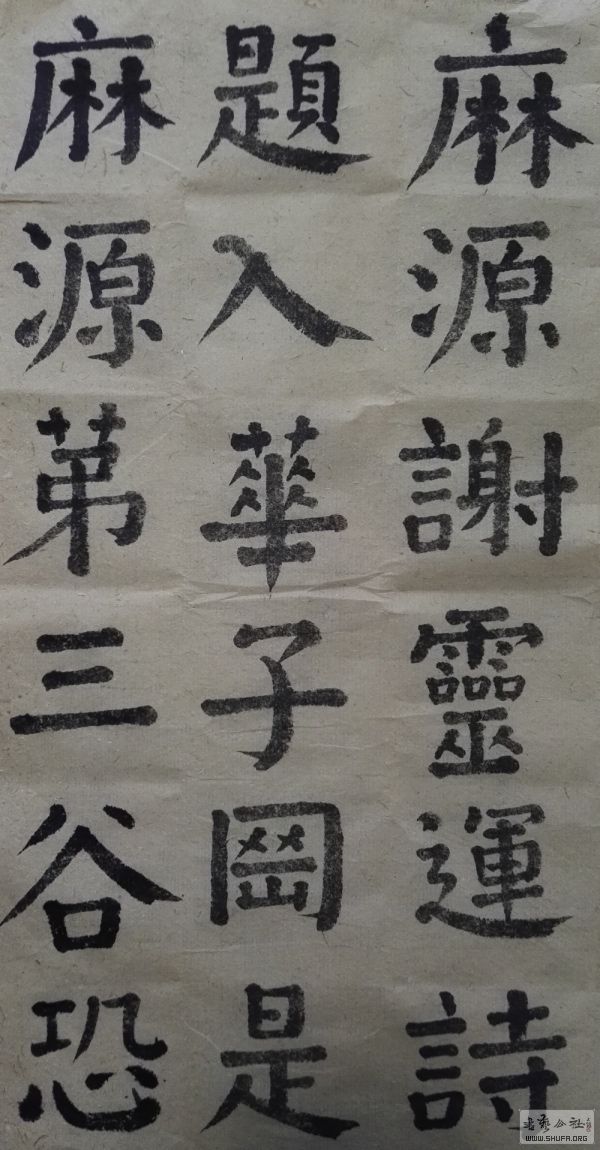 麻源謝靈運詩
題入華子岡是
麻源苐三谷恐
書藝公社
WWW.SHUFA.ORG